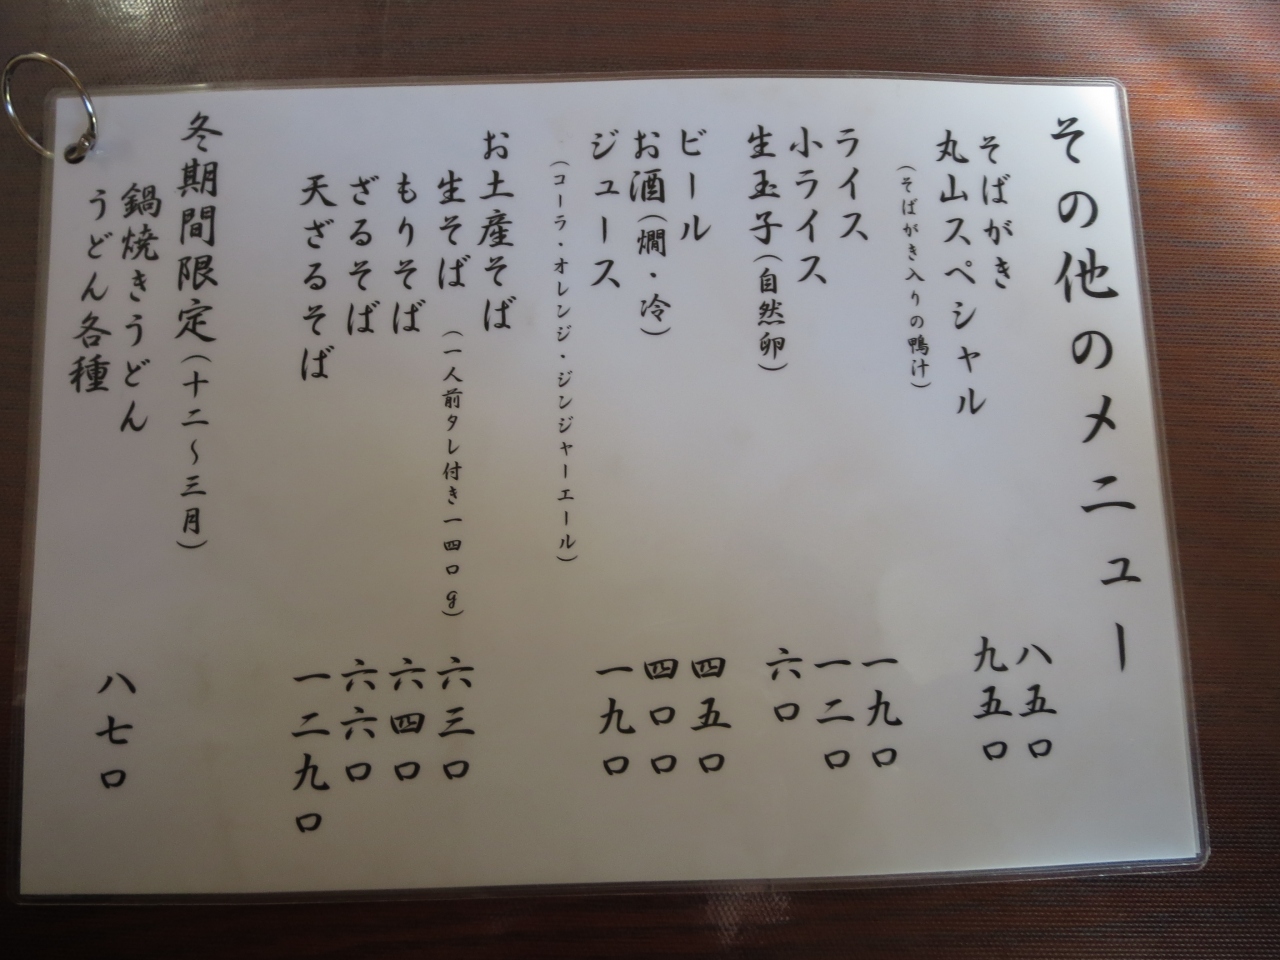 その他のメニュー
そばがき 八五〇
丸山スペシャル 九五〇
(そばがき入りの鴨汁)
ライス 一九〇
小ライス 一二〇
生玉子(自然卵) 六〇
ビール 四五〇
お酒(燗・冷) 四〇〇
ジュース 一九〇
(コーラ・オレンジ・ジンジャーエール)
お土産そば
生そば (一人前タレ付き一四〇g) 六三〇
もりそば 六四〇
ざるそば 六六〇
天ざるそば 一二九〇
冬期間限定(十二~三月)
鍋焼きうどん
うどん各種 八七〇